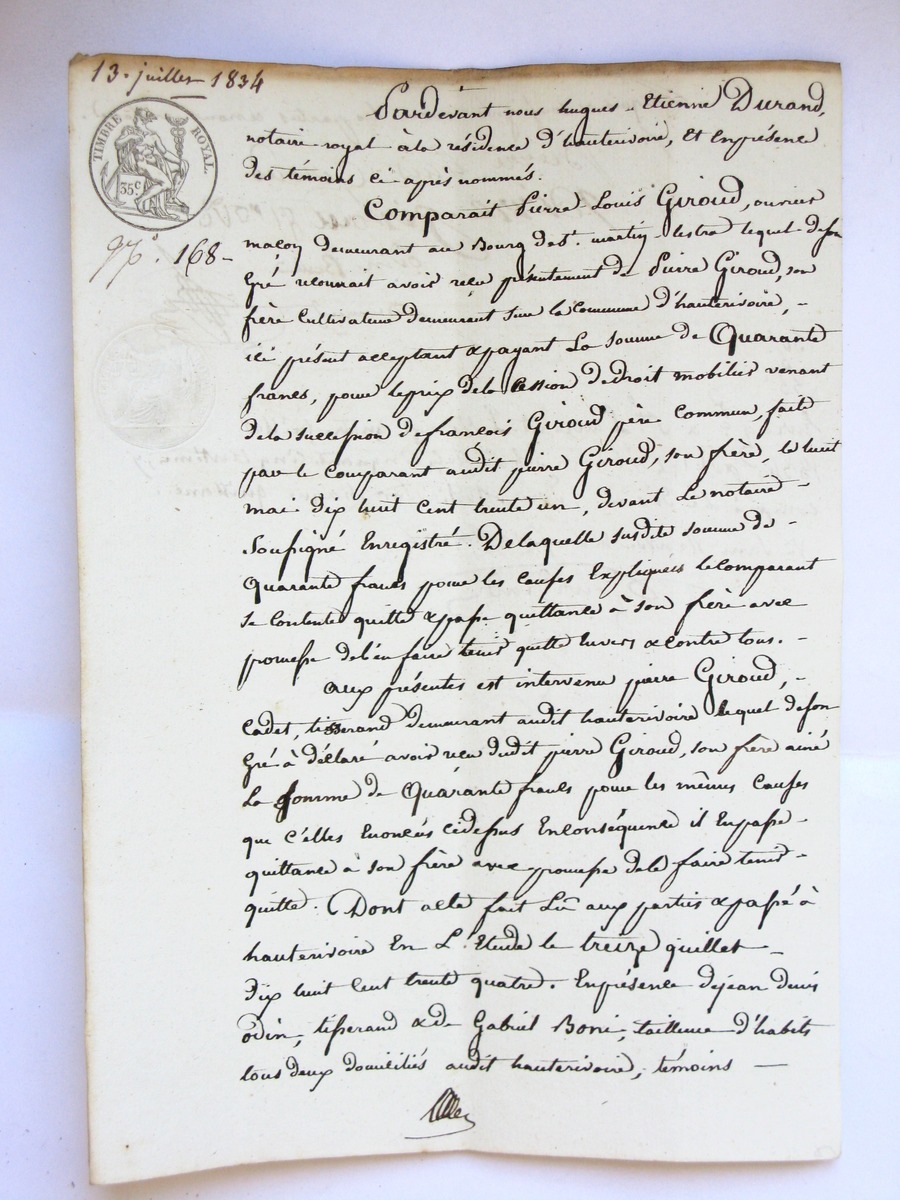 13. juillet 1834
TIMBRE ROYAL.
35.c
168 -
Pardevant nous hugues - Etienne Durand,
notaire royal à la résidence d'hauterivoire, et en présence
des témoins ci après nommés.
Comparait Pierre Louis Giroud, ouvrier
maçon demeurant au Bourg de St. martin lestra lequel de son
Gré reconnait avoir reçu présentement de Pierre Giroud, son
frère Cultivateur demeurant sur la Commune d'hauterivoire, -
ici présent acceptant & payant La somme de Quarante
francs, pour le prix de la Cession de droit mobilier venant
de la succession de francois Giroud père Commun, faite
par le Comparant audit pierre Giroud, son frère, le huit
mai dix huit Cent trente un, devant Le notaire -
Soussigné Enregistré. De laquelle susdite somme de -
Quarante francs pour les causes Expliquees le Comparant
se Contente quitte & passe quittance à son frère avec
promesse de l'en faire tenir quitte Envers & contre tous. -
aux présentes est intervenu pierre Giroud, -
Cadet, tisserand demeurant audit hauterivoire lequel de son
Gré à déclaré avoir reçu dudit pierre Giroud, son frère ainé
La somme de Quarante francs pour les mêmes Causes
que C'elles Enoncés cidessus En Conséquence il En passe -
quittance à son frère avec promesse de le faire tenir -
quitte. Dont acte fait Lu aux parties & passé à
hauterivoire En L'Etude le treize juillet -
Dix huit Cent trente quatre. En présence de jean denis
odin, tisserand & de Gabriel Boni, tailleur d'habits
tous deux domiciliés audit hauterivoire, témoins -